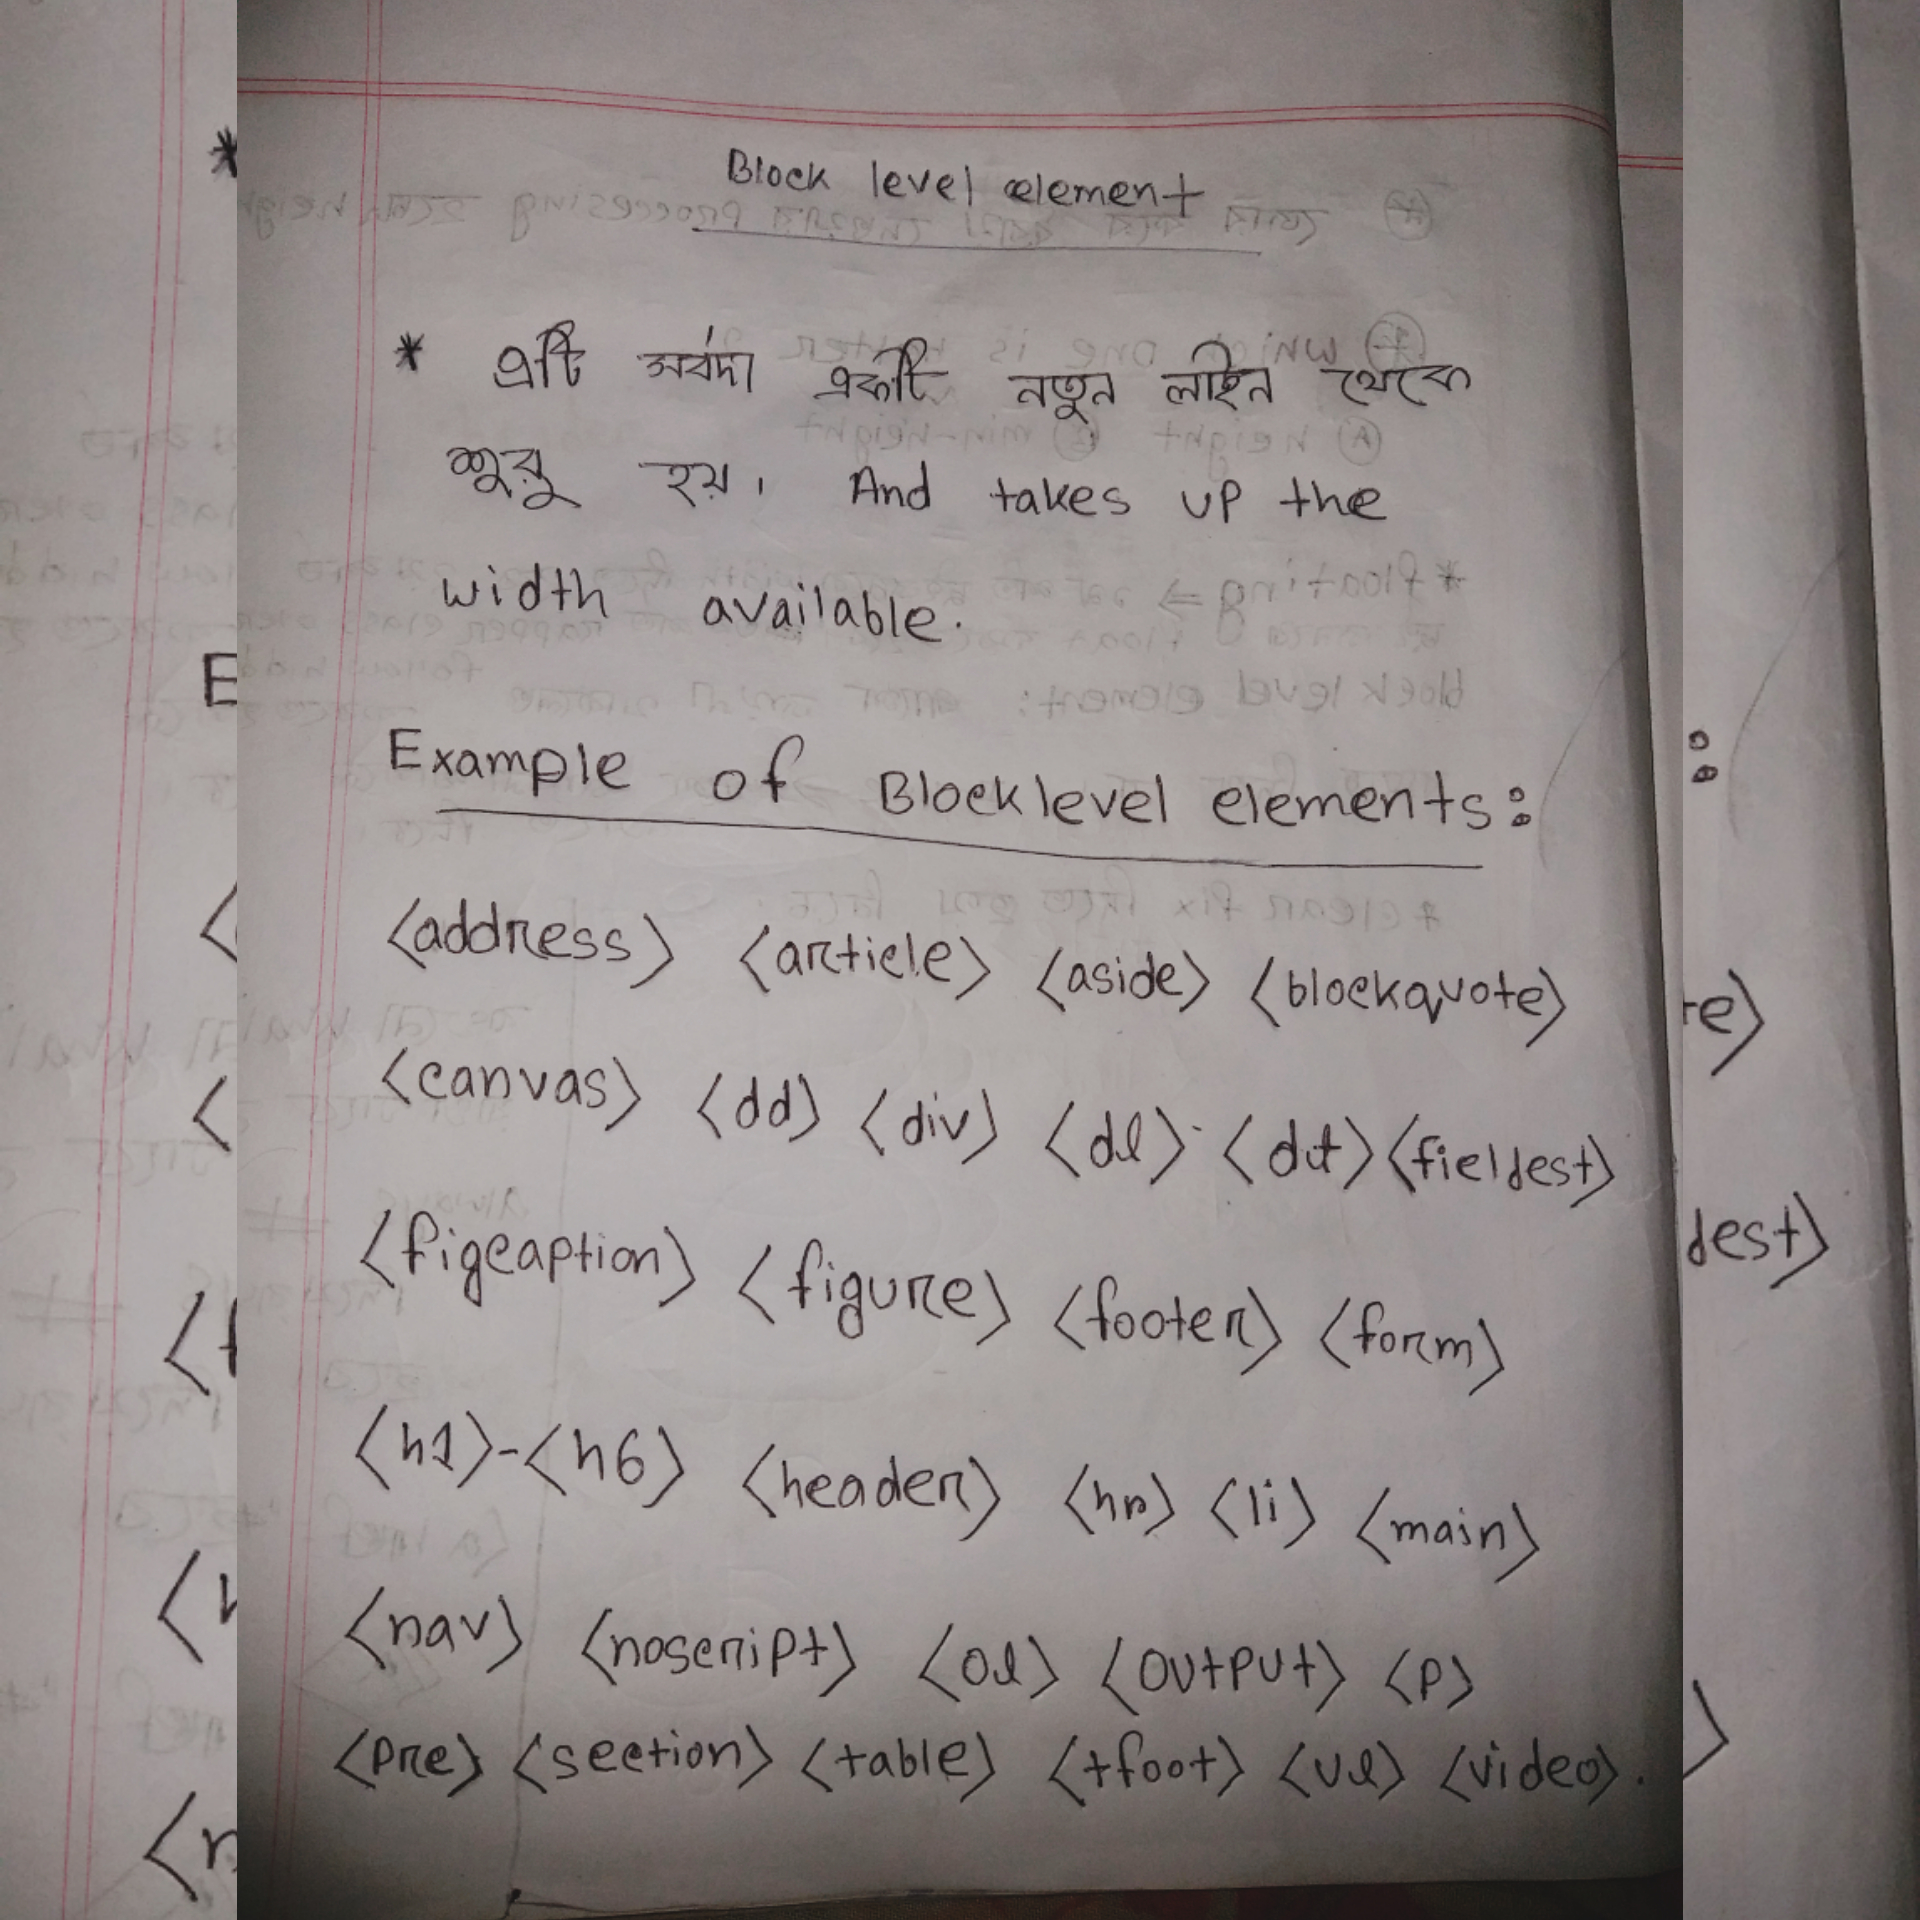 Block level element
* এটি সর্বদা একটি নতুন লাইন থেকে
শুরু হয়। And takes up the
width available.
Example of Block level elements:
<address> <article> <aside> <blockquote>
<canvas> <dd> <div> <dl> <dt> <fieldest>
<figcaption> <figure> <footer> <form>
<h1>-<h6> <header> <hr> <li> <main>
<nav> <noscript> <ol> <output> <p>
<pre> <section> <table> <tfoot> <ul> <video>.